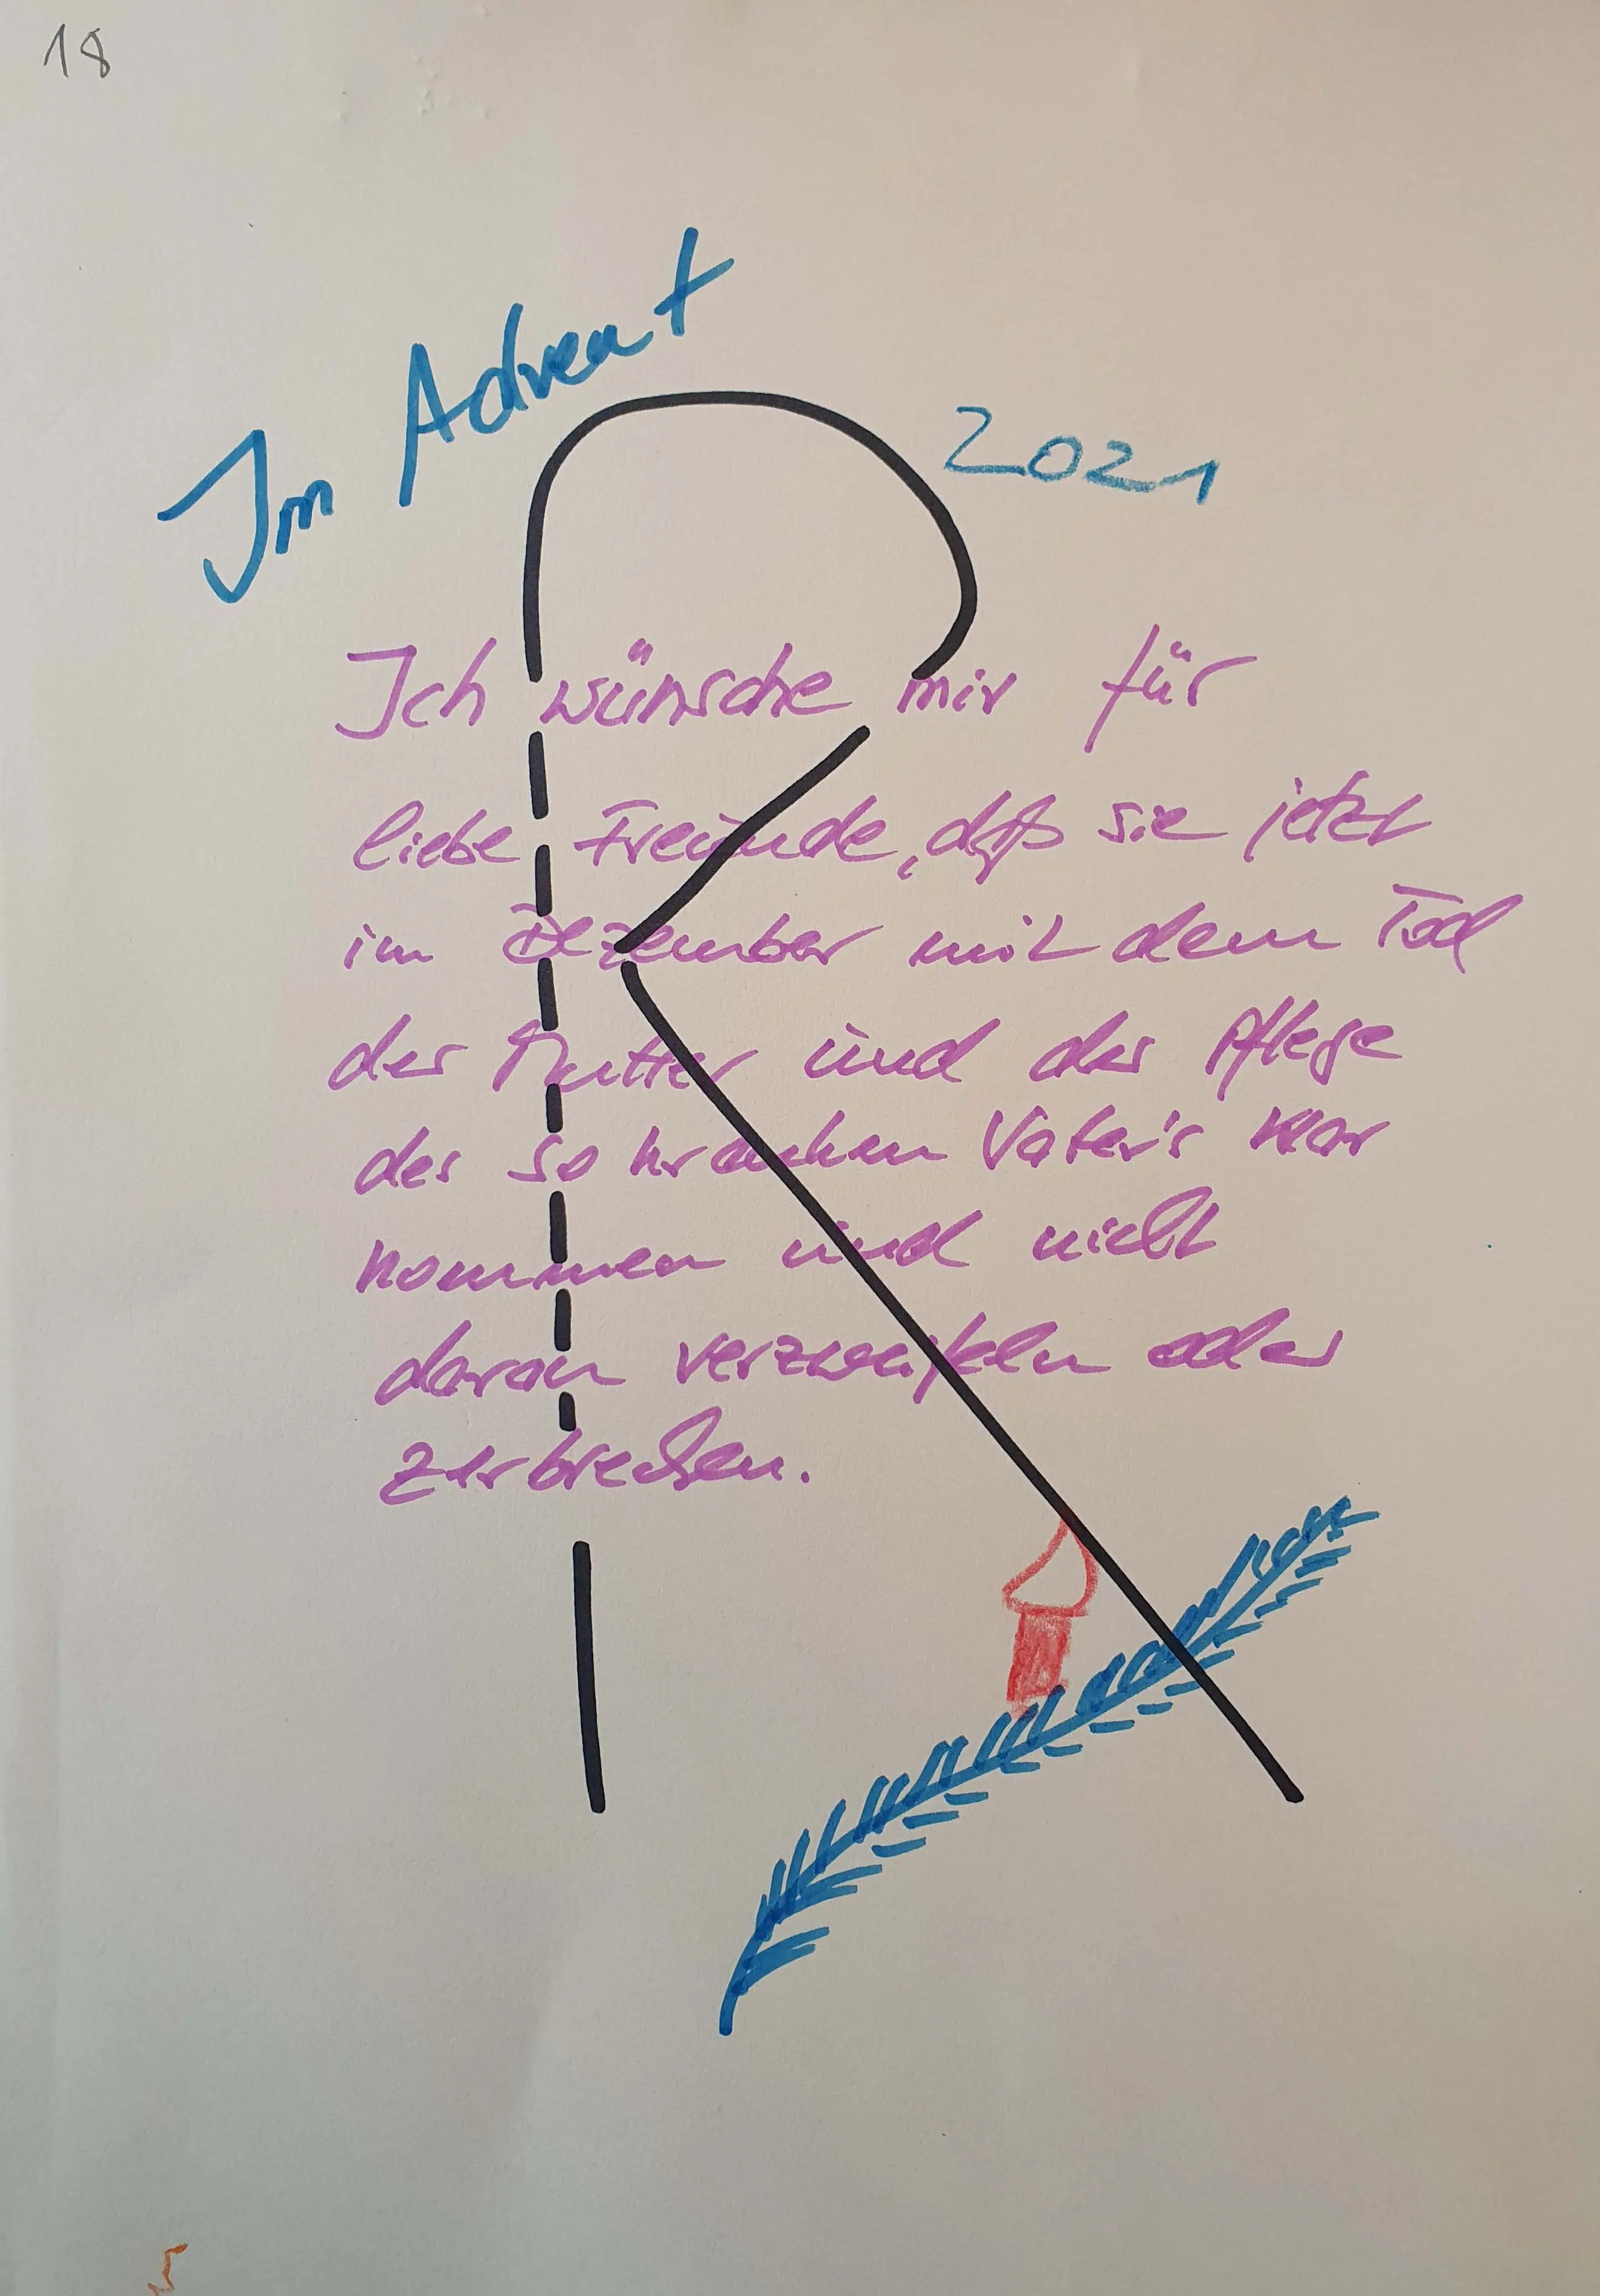 18
Im Advent
2021
R
Ich wünsche mir für
liebe Freunde, daß sie jetzt
im Dezember mit dem Tod
der Mutter und der Pflege
des so kranken Vater's klar
kommen und nicht
daran verzweifeln oder
zerbrechen.